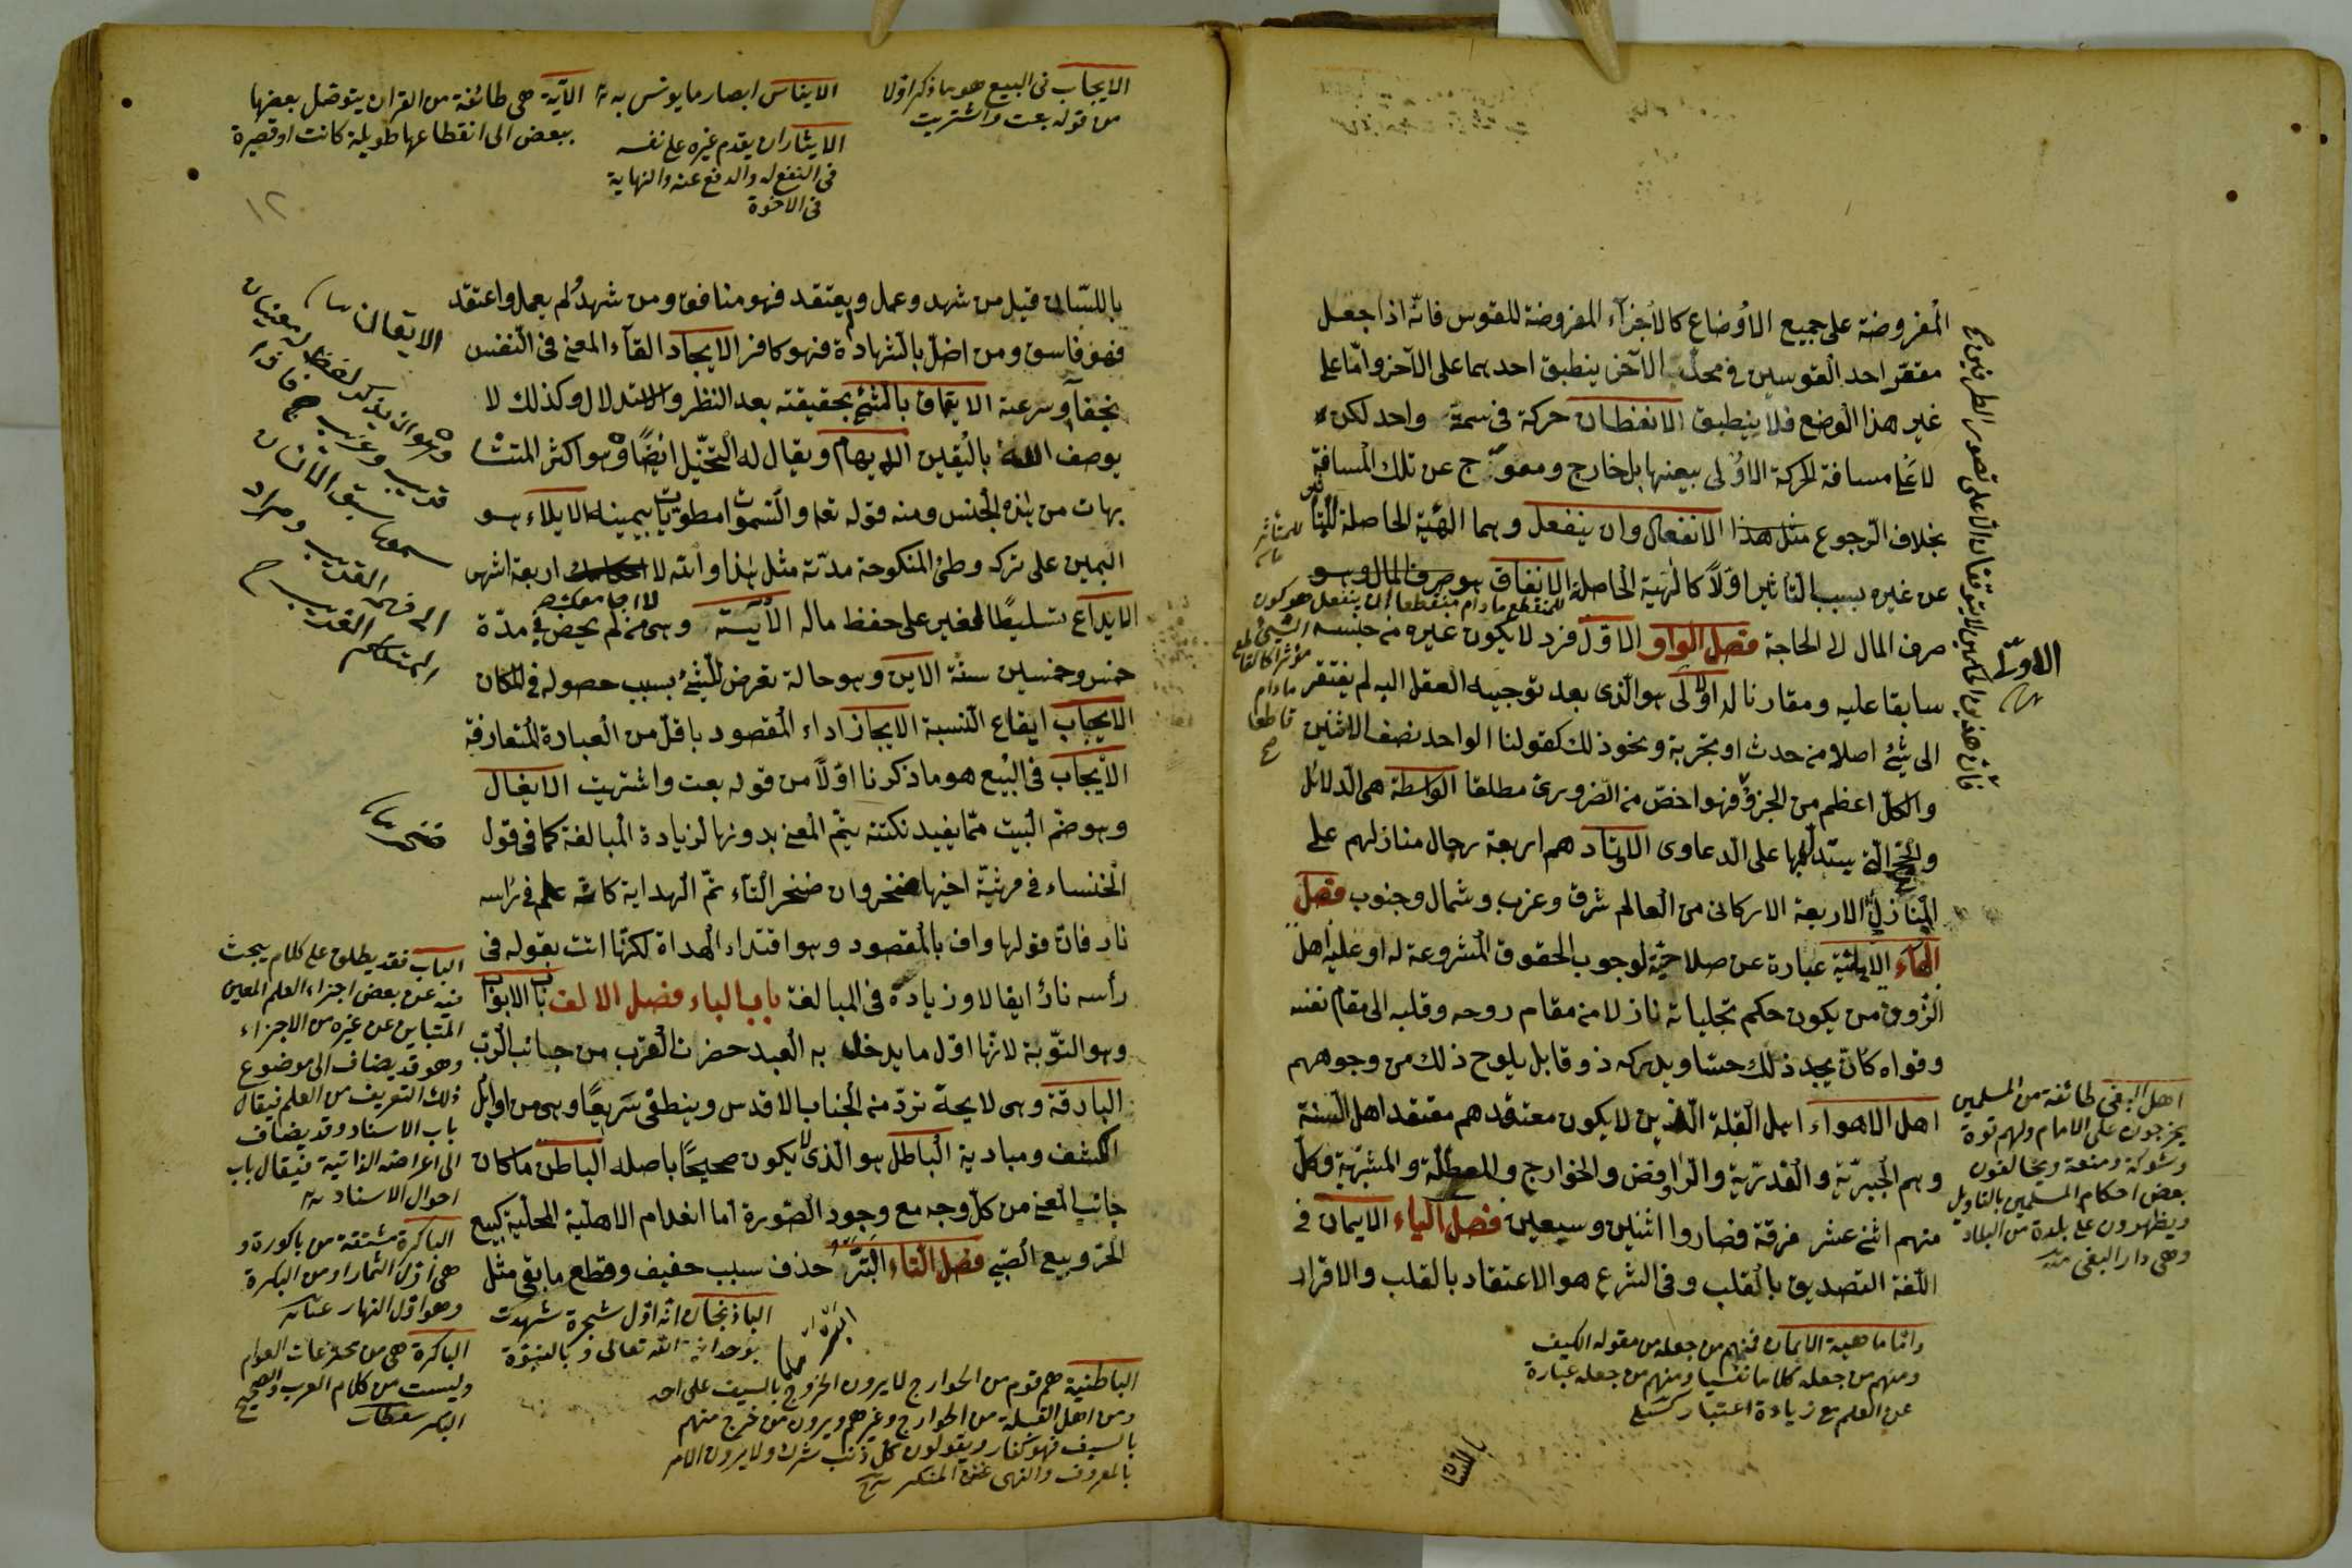 المفروضة على جميع الاوضاع كالاجزاء المفروضة للقوس فانّه اذا جعل
مقعر احد القوسين في محدب الآخر ينطبق احدهما على الآخر وامّا على
غير هذا الوضع فلا ينطبق الانعطاف حركة في سمت واحد لكن
لا على مسافة الحركة الاولى بعينها بل خارج ومعوّج عن تلك المسافة
بخلاف الرجوع الانفعال وان ينفعل وهما الهيئة الحاصلة للمتأثر
عن غيره بسبب التاثير اوّلاً كالهيئة الحاصلة الانفاق هو صرف المال وهو
للمنقطع ما دام منقطعا ان ينفعل هو كون الشئ
مؤثرا كالقاطع
ما دام
قاطعا
صح
صرف المال الى الحاجة فصل الواو الاوّل فرد لا يكون غيره من جنسه
سابقا عليه ومقارنا له الاولى هو الذى بعد توجيه العقل اليه لم يفتقر
الى شئ اصلا من حدث او تجربة ونحو ذلك كقولنا الواحد نصف الاثنين
والكلّ اعظم من الجزؤ فهو اخصّ من الضرورى مطلقا الواسطة هى الدلائل
والحجج التى يستدلّ بها على الدعاوى الاوتاد هم اربعة رجال منازلهم على
المنازل الاربعة الاركان من العالم شرق وغرب وشمال وجنوب فصل
الهاء الاهليّة عبارة عن صلاحيّة لوجوب الحقوق المشروعة له او عليه اهل
الذوق من يكون حكم تجلياته نازلا من مقام روحه وقلبه الى مقام نفسه
وقواه كانّ يجد ذلك حسّا ويدركه ذوقا بل يلوح ذلك من وجوههم
اهل الاهواء اهل القبلة الذين لا يكون معتقدهم معتقد اهل السنة
وهم الجبريّة والقدريّة والروافض والخوارج والمعطلة والمشبّهة وكلّ
منهم اثنى عشر فرقة فصاروا اثنين وسبعين فصل الياء الايمان فى
اللغة التصديق بالقلب وفى الشرع هو الاعتقاد بالقلب والاقرار
الاولى
اهل البغى طائفة من المسلمين
يخرجون على الامام ولهم قوة
وشوكة ومنعة ويخالفون
بعض احكام المسلمين بالتاويل
ويظهرون على بلدة من البلاد
وهى دار البغى
واما ماهية الايمان فمنهم من جعله من مقولة الكيف
ومنهم من جعله كلاما نفسيا ومنهم من جعله عبارة
عن العلم مع زيادة اعتبار
باللسان
الايجاب فى البيع هو ما ذكر اوّلا
من قوله بعت واشتريت
الايناس ابصار ما يونس به
الايثار ان يقدم غيره على نفسه
فى النفع له والدفع عنه والنهاية
فى الاخوة
الآية هى طائفة من القران يتوصّل بعضها
ببعض الى انقطاعها طويلة كانت او قصيرة
١٢
باللسان قيل من شهد وعمل ولم يعتقد فهو منافق ومن شهد ولم يعمل واعتقد
فهو فاسق ومن اخلّ بالشهادة فهو كافر الايجاد القاء المعنى فى النفس
بخفاء وسرعة الايقان بالشئ بحقيقته بعد النظر والاستدلال وكذلك لا
يوصف الله باليقين الايهام ويقال له التخيّل ايضًا وهو اكثر المتشا
بهات من هذه الجنس ومنه قوله تعا والسموات مطويّات بيمينه الايلاء هو
اليمين على ترك وطئ المنكوحة مدّة مثل هذا والله لا اجامعك اربعة اشهر
الايداع تسليط الغير على حفظ ماله الآيسة وهى من لم يحض فى مدّة
خمس وخمسين سنة الاين وهو حالة تعرض للشئ بسبب حصوله فى المكان
الايجاب ايقاع النسبة الايجاز اداء المقصود باقلّ من العبارة المتعارفة
الايجاب فى البيع هو ما ذكرنا اوّلا من قوله بعت واشتريت الايغال
وهو ختم البيت ممّا يفيد نكتة يتمّ المعنى بدونها لزيادة المبالغة كما فى قول
الخنساء فى مرثيّة اخيها صخر وان صخر التاتمّ الهداة به كانّه علم فى راسه
نار فان قولها واف بالمقصود وهو اقتداء الهداة لكنّها اتت بقوله فى
رأسه نار ايغالا وزيادة فى المبالغة باب الباء فصل الالف باب الابواب
وهو التوبة لانّها اوّل ما يدخل به العبد حضرات القرب من جانب الرب
البارقة وهى لايحة تردّ من الجناب الاقدس وينطفى سريعًا وهى من اوايل
الكشف ومباديه الباطل هو الذى لا يكون صحيحًا باصله الباطن ما كان
جانب المعنى من كلّ وجه مع وجود الصورة اما انعدام الاهلية المحلية كبيع
الحرّ وبيع الصبى فصل التاء البتر حذف سبب خفيف وقطع ما بقى مثل
الباذنجان انه اوّل شجرة شهدت
بوحدانية الله تعالى وبالنبوّة
الباطنية هم قوم من الخوارج لا يرون الخروج بالسيف على احد
ومن اهل القبلة من الخوارج وغيرهم ويرون من خرج منهم
بالسيف فهو كفار ويقولون كلّ ذنب شرك ولا يرون الامر
بالمعروف والنهى عن المنكر
الباب فقد يطلق على كلام يبحث
فيه عن بعض اجزاء العلم المعين
المتباين عن غيره من الاجزاء
وهو قد يضاف الى موضوع
ذلك التعريف من العلم فيقال
باب الاسناد وقد يضاف
الى اعراضه الذاتية فيقال باب
احوال الاسناد
الباكرة مشتقة من باكورة و
هى اوّل الثمار او من البكرة
وهو اوّل النهار
الباكرة هى من مخترعات العوام
وليست من كلام العرب والصحيح
البكر